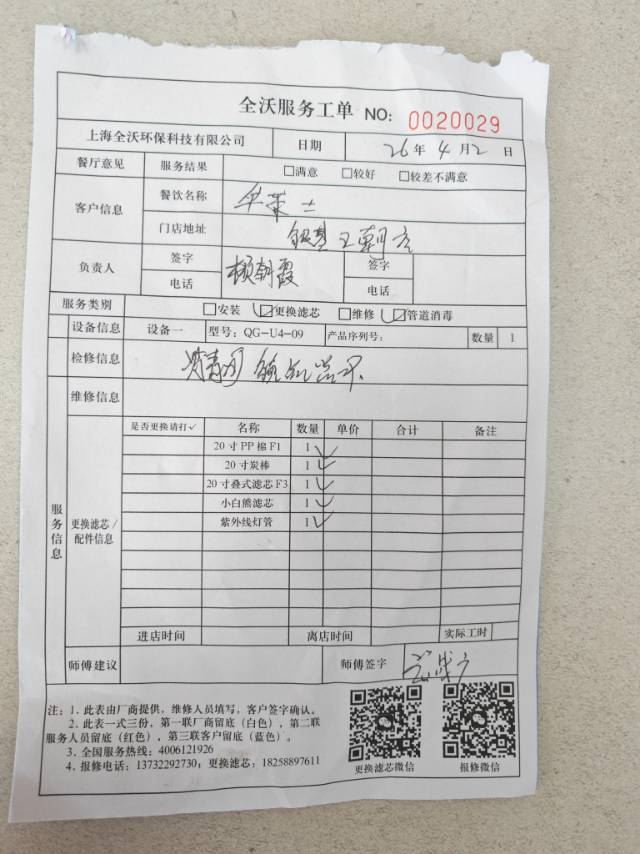 全沃服务工单 NO: 0020029
上海全沃环保科技有限公司 日期 26年4月2日
餐厅意见 服务结果 □满意 □较好 □较差不满意
客户信息 餐饮名称 华莱士
门店地址 银基王朝店
负责人 签字 赖朝霞 签字
电话 电话
服务类别 □安装 ☑更换滤芯 □维修 ☑管道消毒
设备信息 设备一 型号: QG-U4-09 产品序列号: 数量 1
检修信息
维修信息
服务信息
更换滤芯/配件信息
是否更换请打✓ 名称 数量 单价 合计 备注
20寸PP棉F1 1 ✓
20寸炭棒 1 ✓
20寸叠式滤芯F3 1 ✓
小白熊滤芯 1 ✓
紫外线灯管 1 ✓
进店时间 离店时间 实际工时
师傅建议 师傅签字
注: 1. 此表由厂商提供, 维修人员填写, 客户签字确认。
2. 此表一式三份, 第一联厂商留底(白色), 第二联
服务人员留底(红色), 第三联客户留底(蓝色)。
3. 全国服务热线: 4006121926
4. 报修电话: 13732292730; 更换滤芯: 18258897611
更换滤芯微信 报修微信